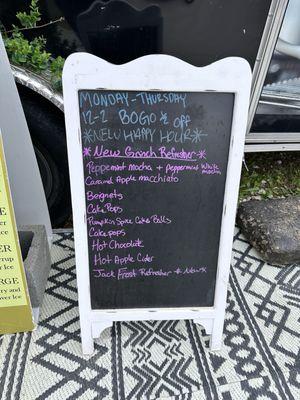 MONDAY-THURSDAY
12-2 BOGO ½ OFF
*NEW HAPPY HOUR*
*New Grinch Refresher*
Peppermint mocha + peppermint White mocha
Caramel Apple macchiato
Beignets
Cake Pops
Pumpkin Spice Cake Balls
Cakepops
Hot Chocolate
Hot Apple Cider
Jack Frost Refresher